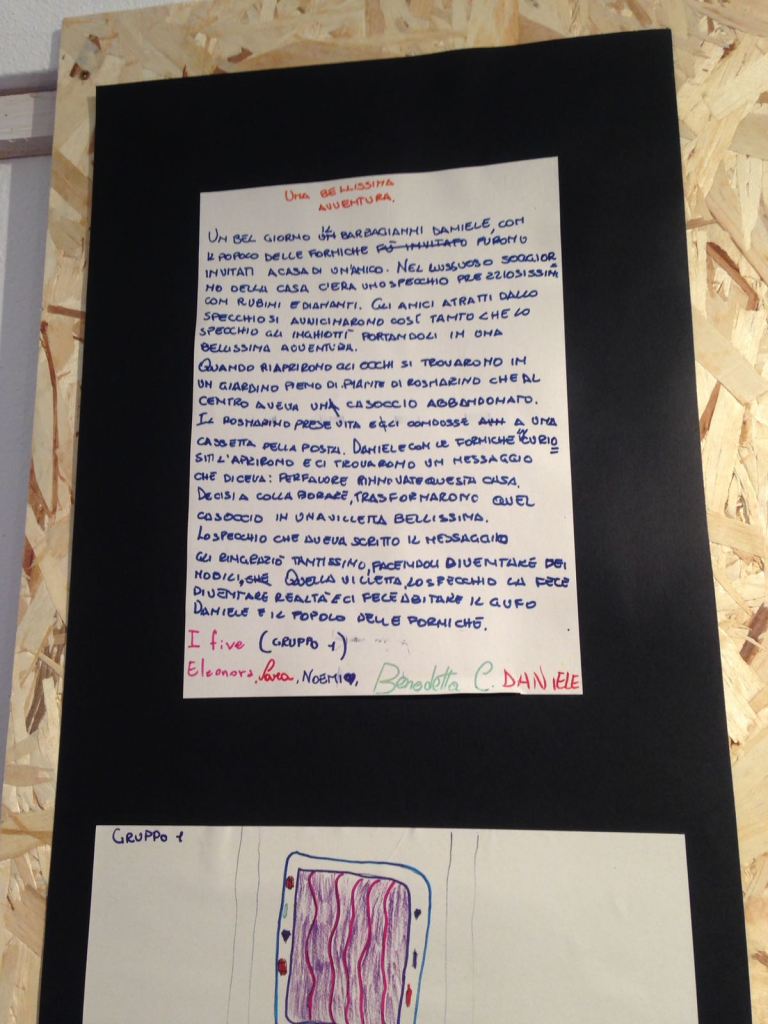 UNA BELLISSIMA
AVVENTURA.
UN BEL GIORNO IL BARBAGIANNI DANIELE, CON
IL POPOLO DELLE FORMICHE FU INVITATO FURONO
INVITATI A CASA DI UN'AMICO. NEL LUSSUOSO SOGGIOR=
NO DELLA CASA C'ERA UNO SPECCHIO PREZZIOSISSIMO
CON RUBINI E DIAMANTI. GLI AMICI ATRATTI DALLO
SPECCHIO SI AVVICINARONO COSÍ TANTO CHE LO
SPECCHIO GLI INGHIOTTÍ PORTANDOLI IN UNA
BELLISSIMA AVVENTURA.
QUANDO RIAPRIRONO GLI OCCHI SI TROVARONO IN
UN GIARDINO PIENO DI PIANTE DI ROSMARINO CHE AL
CENTRO AVEVA UN CASOCCIO ABBANDONATO.
IL ROSMARINO PRESE VITA E CI CONDUSSE A UNA
CASSETTA DELLA POSTA. DANIELE CON LE FORMICHE INCURIO=
SITI L'APRIRONO E CI TROVARONO UN MESSAGGIO
CHE DICEVA: PERFALORE RINNOVATE QUESTA CASA.
DECISI A COLLABORARE, TRASFORMARONO QUEL
CASOCCIO IN UNA VILLETTA BELLISSIMA.
LO SPECCHIO CHE AVEVA SCRITTO IL MESSAGGIO
GLI RINGRAZIÒ TANTISSIMO, FACENDOLI DIVENTARE DEI
NOBILI, CHE QUELLA VILLETTA, LO SPECCHIO LA FECE
DIVENTARE REALTÀ E CI FECE ABITARE IL GUFO
DANIELE E IL POPOLO DELLE FORMICHE.
I five (GRUPPO 1)
Eleonora, Sara, NOEMI, Benedetta C. DANIELE
GRUPPO 1